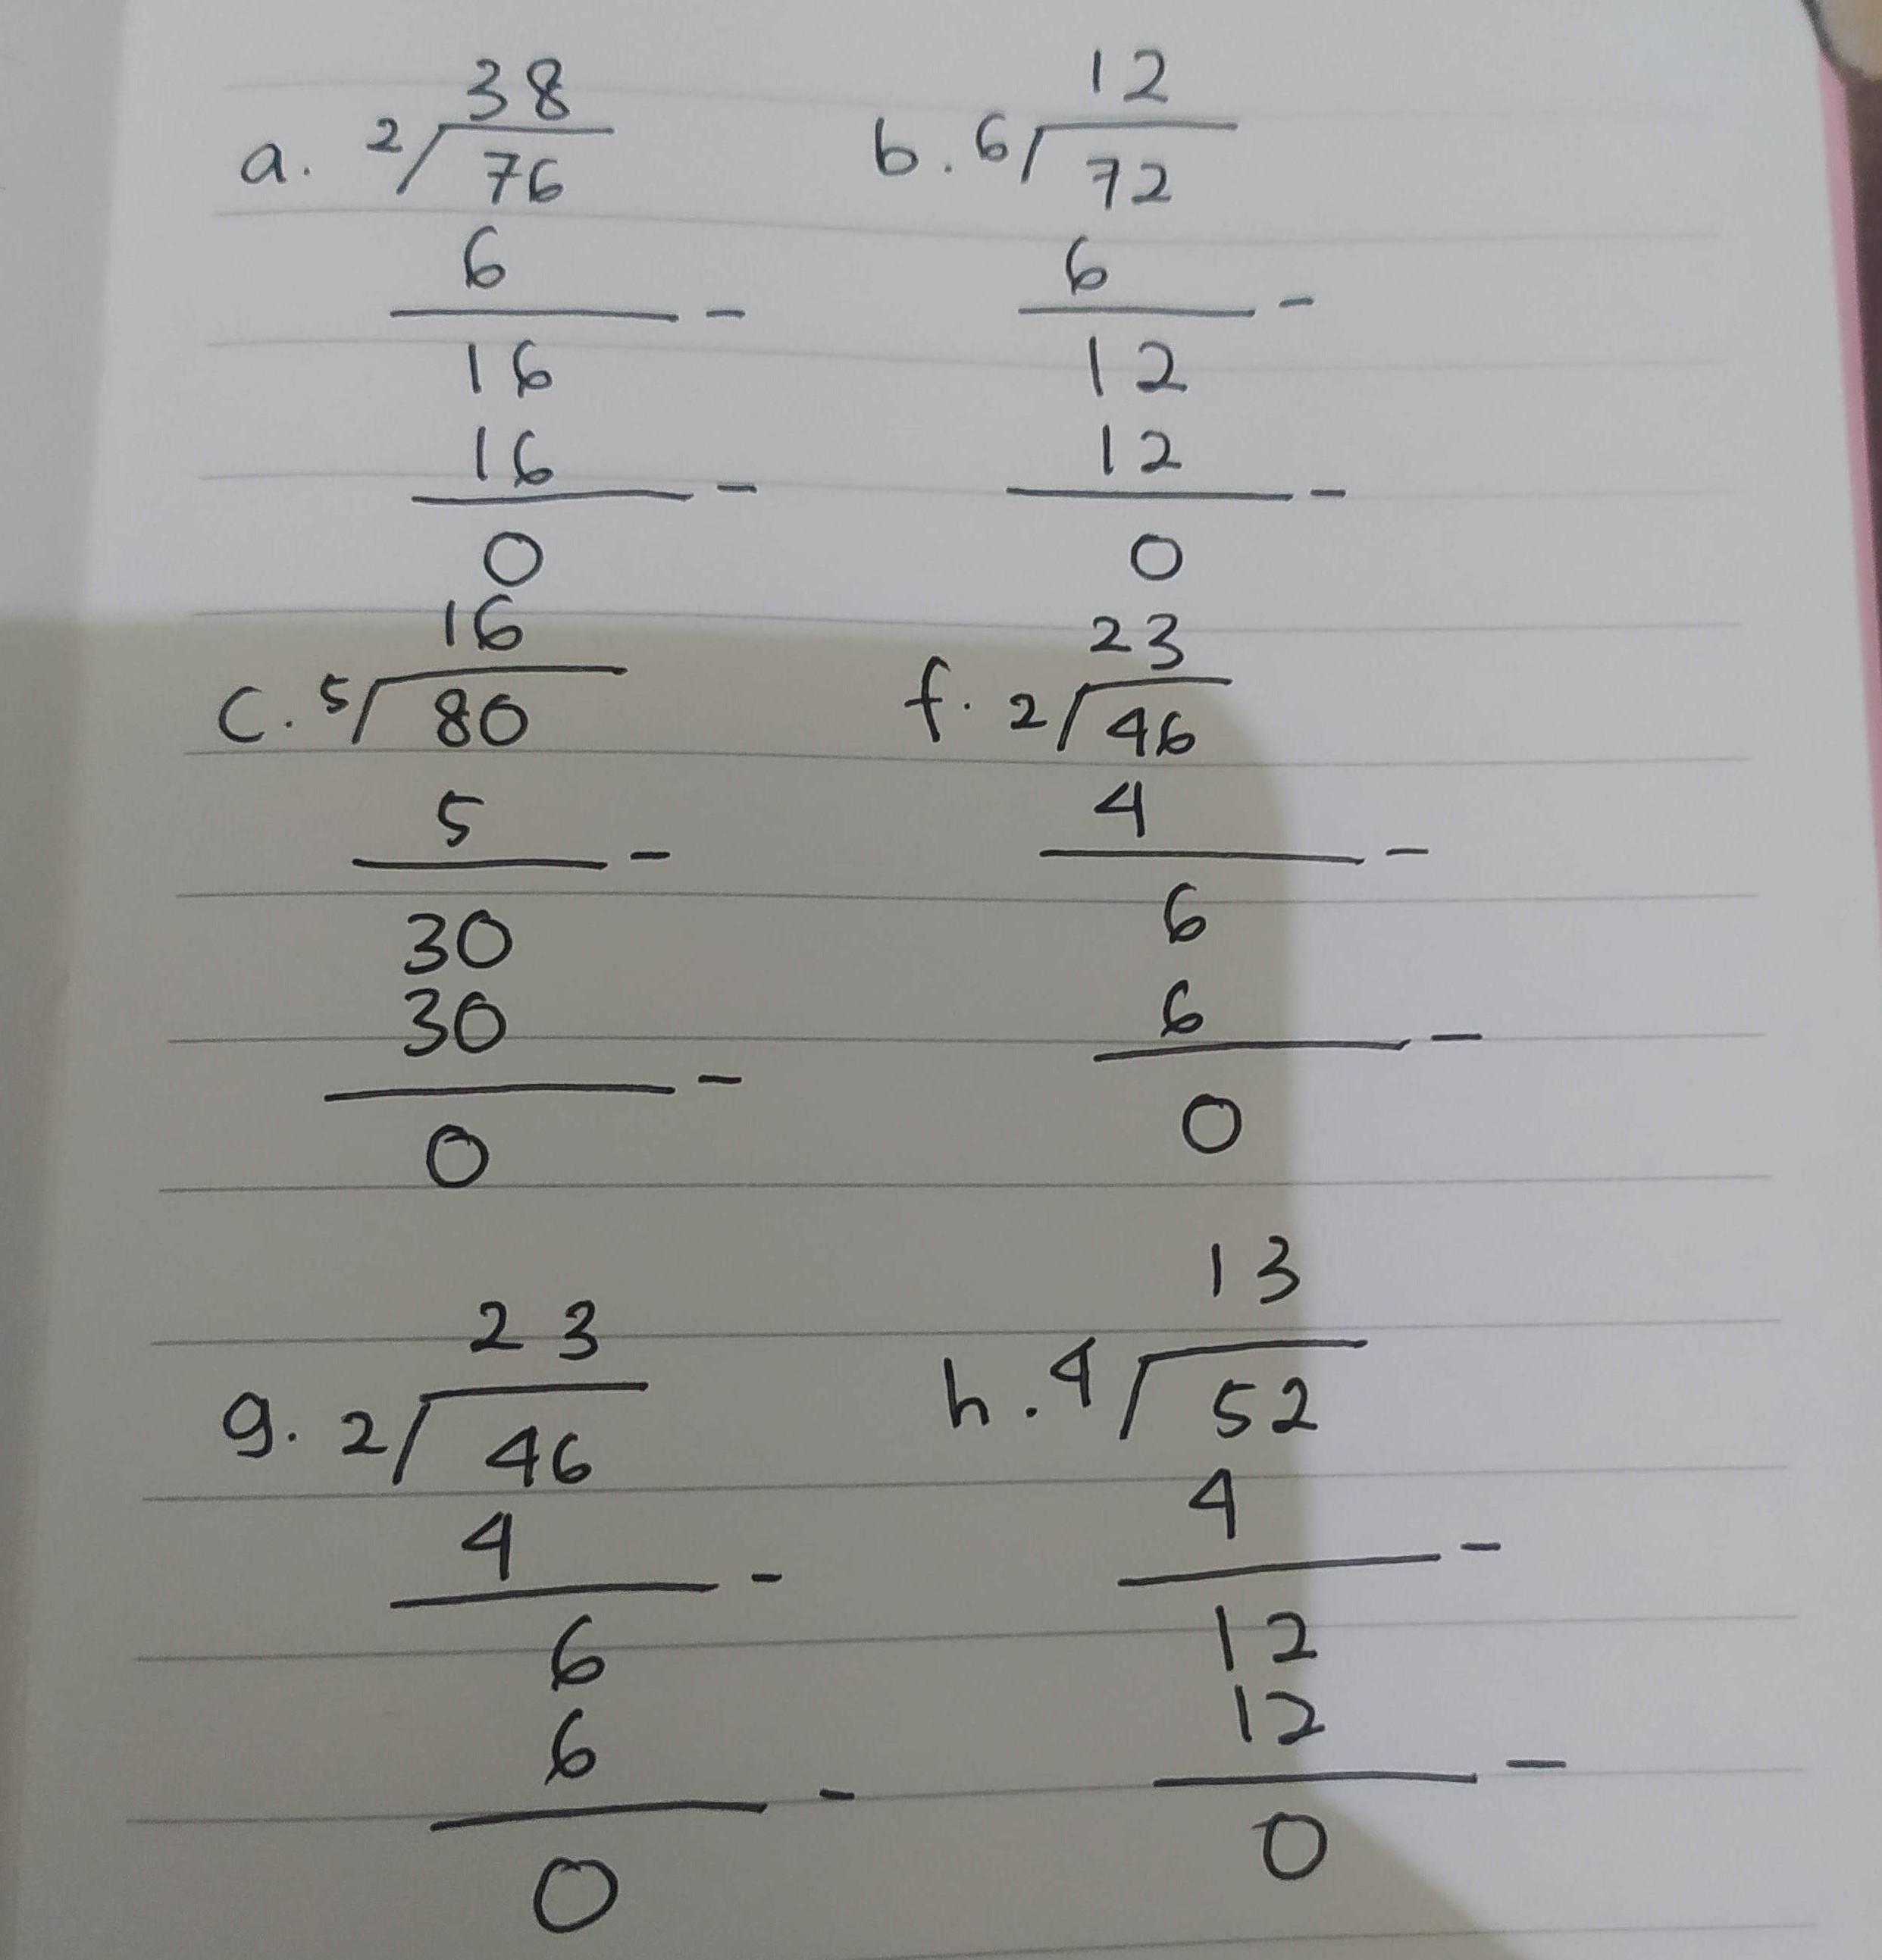 38
a. 2/76
6
-
16
16
-
0
12
b. 6/72
6
-
12
12
-
0
16
c. 5/80
5
-
30
30
-
0
23
f. 2/46
4
-
6
6
-
0
23
g. 2/46
4
-
6
6
-
0
13
h. 4/52
4
-
12
12
-
0